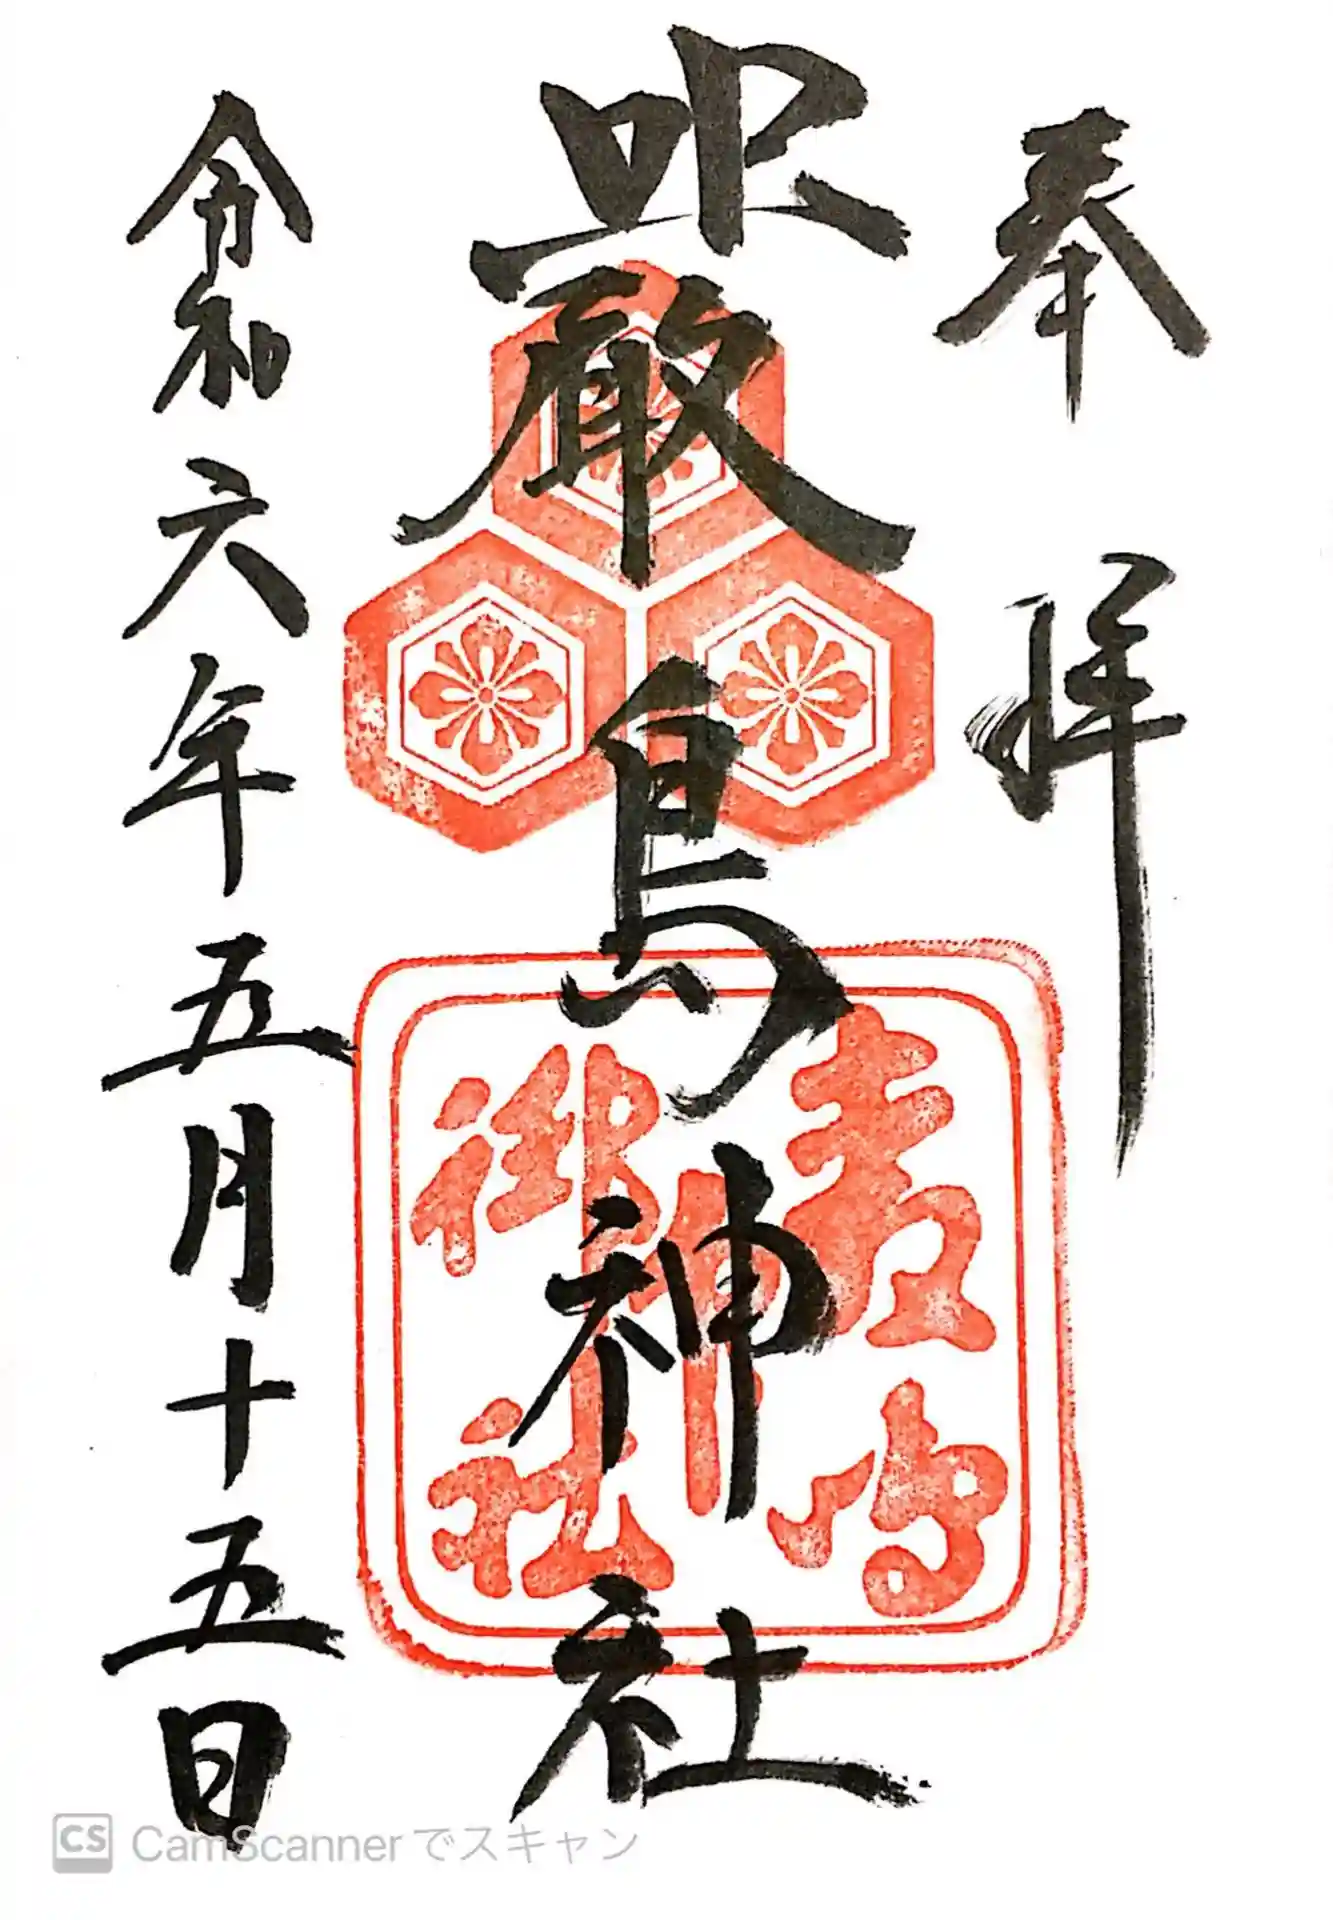 奉拝
嚴島神社
嚴島
神
御社
令和六年五月十五日
CS CamScannerでスキャン